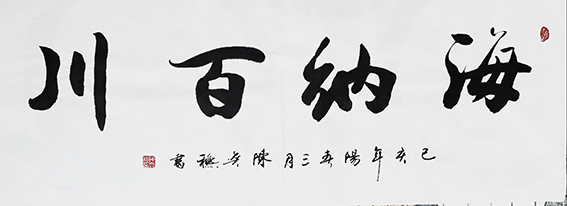 海纳百川
己亥年陽春三月陳
書